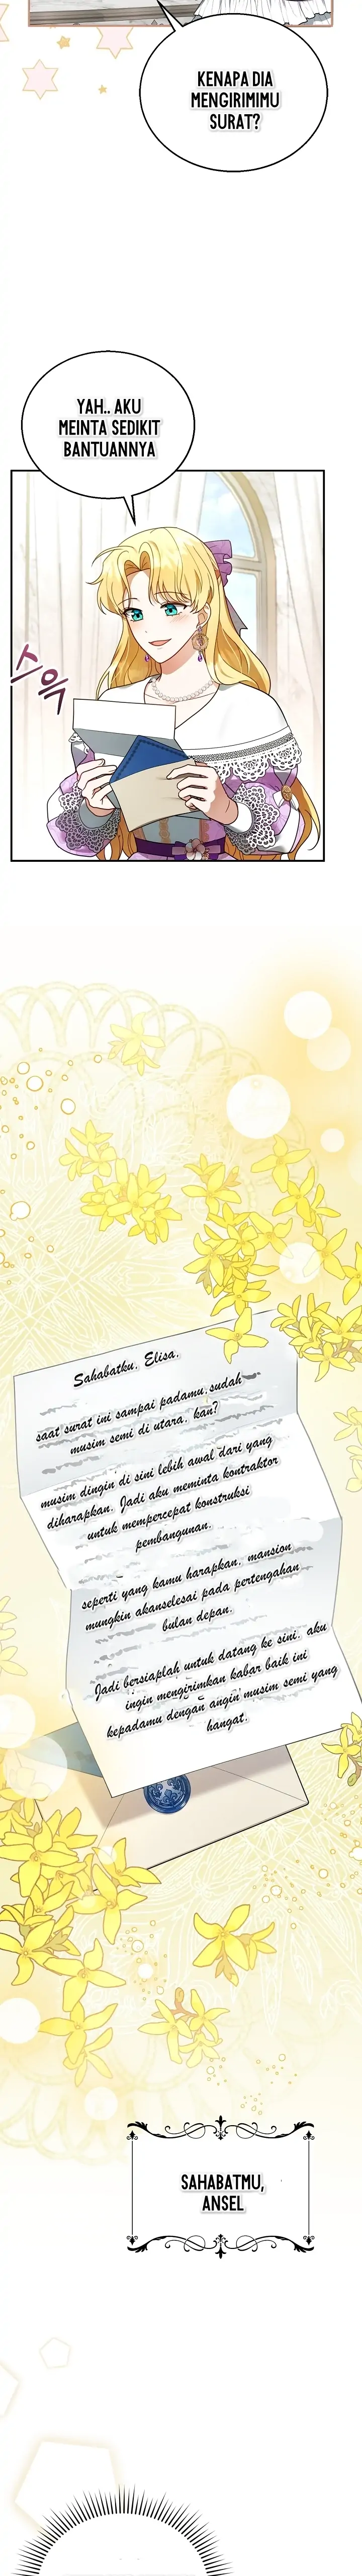 KENAPA DIA
MENGIRIMIMU
SURAT?
YAH.. AKU
MEINTA SEDIKIT
BANTUANNYA
스윽
Sahabatku, Elisa.
saat surat ini sampai padamu,sudah
musim semi di utara, kan?
musim dingin di sini lebih awal dari yang
diharapkan. Jadi aku meminta kontraktor
untuk mempercepat konstruksi
pembangunan.
seperti yang kamu harapkan, mansion
mungkin akanselesai pada pertengahan
bulan depan.
Jadi bersiaplah untuk datang ke sini. aku
ingin mengirimkan kabar baik ini
kepadamu dengan angin musim semi yang
hangat.
SAHABATMU,
ANSEL